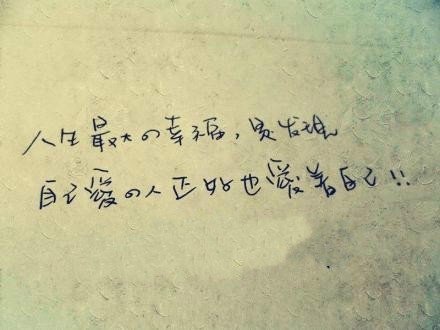 人生最大の幸福,是发现
自己愛の人正好也愛着自己!!